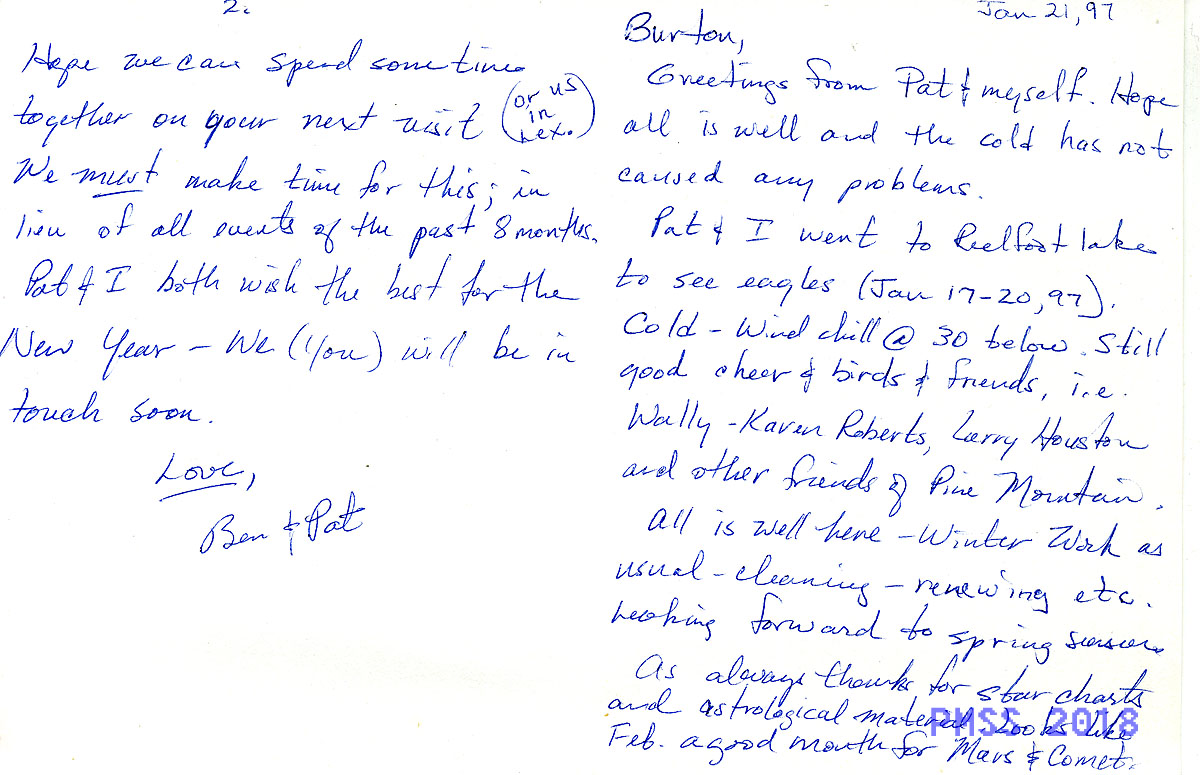 Jan 21, 97
Burton,
Greetings from Pat & myself. Hope
all is well and the cold has not
caused any problems.
Pat & I went to Reelfoot lake
to see eagles (Jan 17-20, 97).
Cold - Wind chill @ 30 below. Still
good cheer & birds & friends, i.e.
Wally - Karen Roberts, Larry Houston
and other friends of Pine Mountain.
All is well here - Winter Work as
usual - cleaning - renewing etc.
Looking forward to spring season.
As always thanks for star charts
and astrological material Looks like
Feb. a good month for Mars & Comet.
PMSS 2018
2.
Hope we can spend some time
together on your next visit (or us in Lex.)
We must make time for this; in
lieu of all events of the past 8 months.
Pat & I both wish the best for the
New Year - We (You) will be in
touch soon.
Love,
Ben & Pat